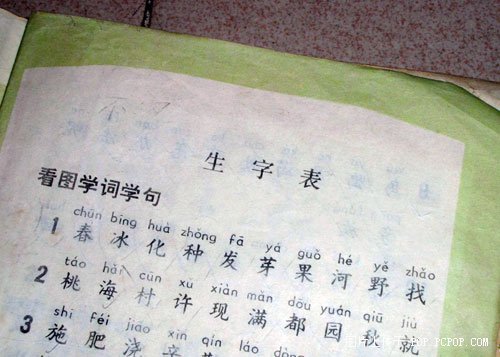 生字表
看图学词学句
chūn bīng huà zhǒng fā yá guǒ hé yě zhǎo
1 春 冰 化 种 发 芽 果 河 野 找
táo hǎi cūn xǔ xiàn mǎn dōu yuán qiū jiù
2 桃 海 村 许 现 满 都 园 秋 就
shī féi jiāo xīn qín láo dòng
3 施 肥 浇 辛